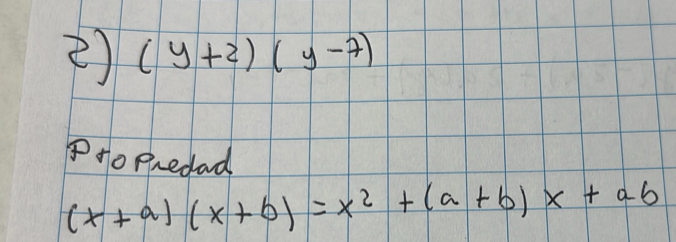 2) (y+2) (y-7)
Propiedad
(x+a) (x+b) = x² + (a+b) x + ab